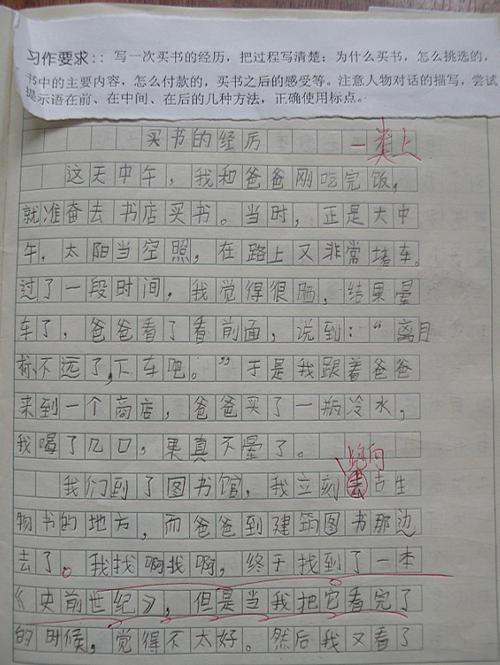 习作要求：：写一次买书的经历，把过程写清楚：为什么买书，怎么挑选的，
书中的主要内容，怎么付款的，买书之后的感受等。注意人物对话的描写，尝试
提示语在前、在中间、在后的几种方法，正确使用标点。
买书的经历
一类上
这天中午，我和爸爸刚吃完饭，
就准奋去书店买书。当时，正是大中
午，太阳当空照，在路上又非常堵车。
过了一段时间，我觉得很晒，结果晕
车了，爸爸看了看前面，说到：“离目
标不远了，下车吧。”于是我跟着爸爸
来到一个商店，爸爸买了一瓶冷水，
我喝了几口，果真不晕了。
我们到了图书馆，我立刻去古生
物书的地方，而爸爸到建筑图书那边
去了。我找啊找啊，终于找到了一本
《史前世纪》，但是当我把它看完了
的时候，觉得不太好。然后我又看了